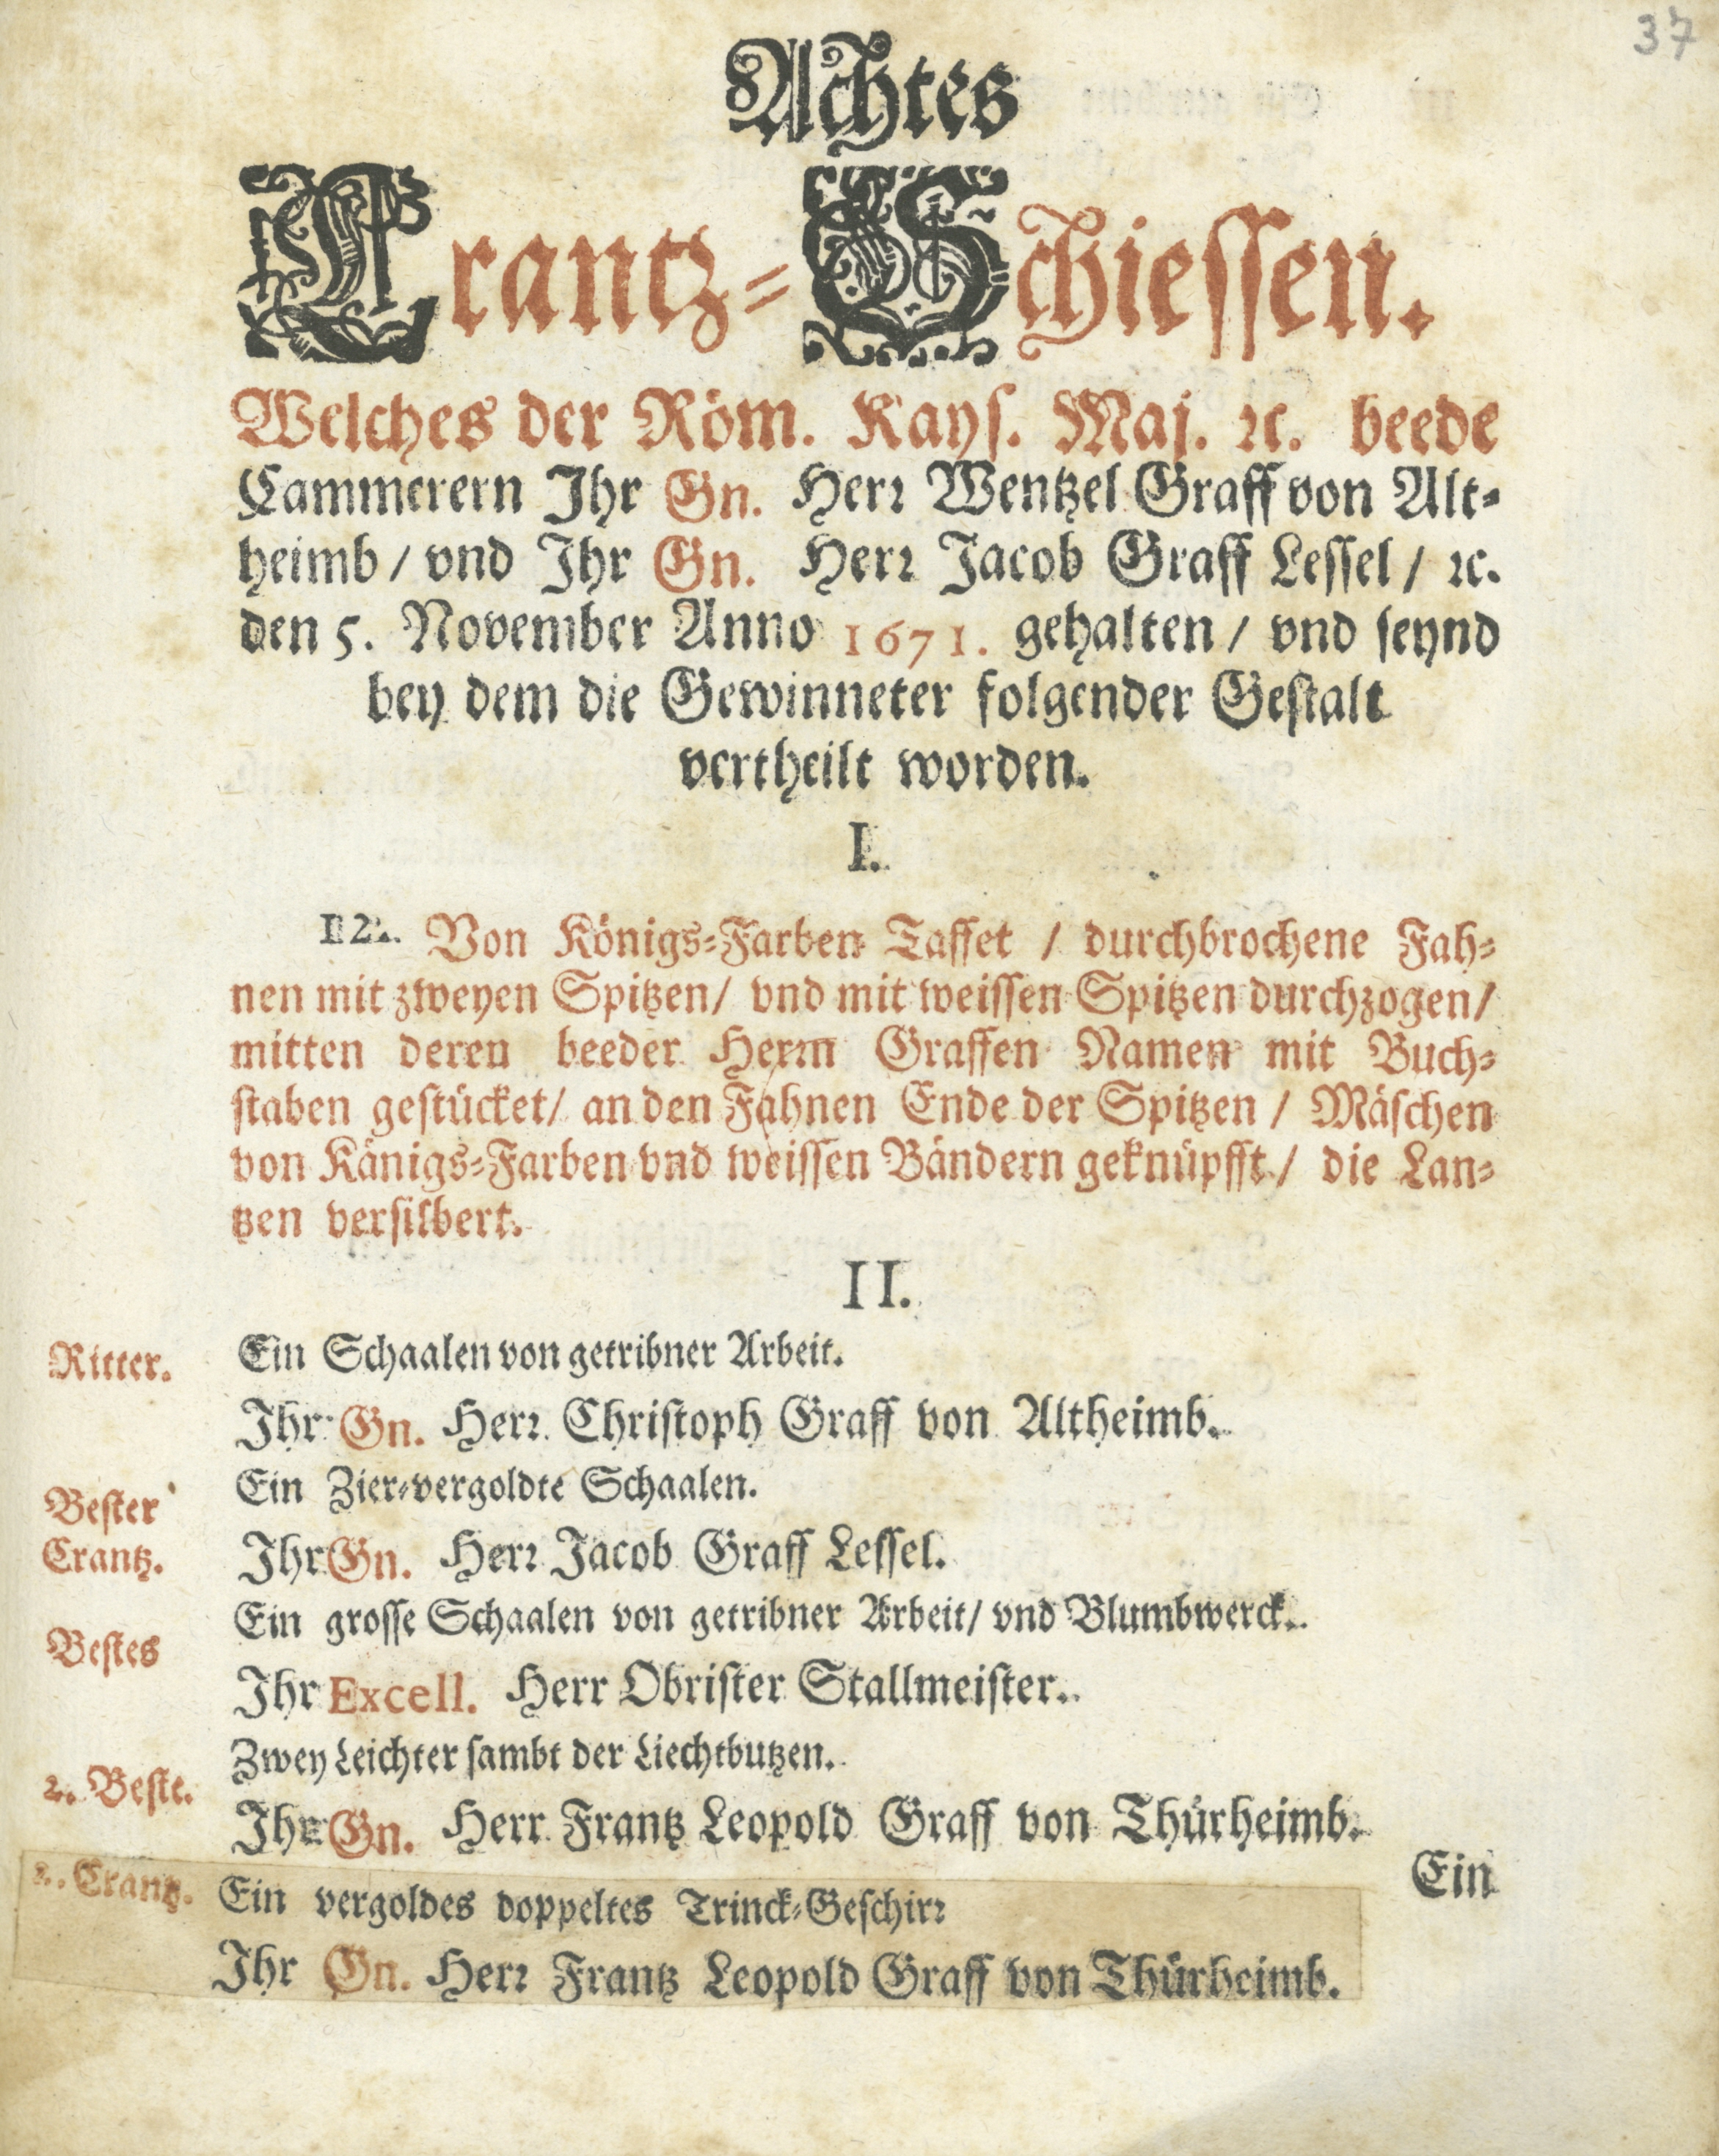 37
Achtes
Crantz-Schiessen.
Welches der Röm. Kays. Maj. ꝛc. beede
Cammerern Ihr Gn. Herꝛ Wentzel Graff von Alt-
heimb / vnd Ihr Gn. Herꝛ Jacob Graff Lessel / ꝛc.
den 5. November Anno 1671. gehalten / vnd seynd
bey dem die Gewinneter folgender Gestalt
vertheilt worden.
I.
12. Von Königs-Farben Taffet / durchbrochene Fah-
nen mit zweyen Spitzen/ vnd mit weissen Spitzen durchzogen/
mitten deren beeder Herꝛn Graffen Namen mit Buch-
staben gestücket/ an den Fahnen Ende der Spitzen / Mäschen
von Känigs-Farben vnd weissen Bändern geknüpfft / die Lan-
tzen versilbert.
II.
Ritter. Ein Schaalen von getribner Arbeit.
Ihr Gn. Herꝛ Christoph Graff von Altheimb.
Bester Ein Zier-vergoldte Schaalen.
Crantz. Ihr Gn. Herꝛ Jacob Graff Lessel.
Ein grosse Schaalen von getribner Arbeit/ vnd Blumbwerck.
Bestes
Ihr Excell. Herr Obrister Stallmeister.
Zwey Leichter sambt der Liechtbutzen.
2. Beste.
Ihr Gn. Herr Frantz Leopold Graff von Thürheimb.
Ein
2. Crantz. Ein vergoldes doppeltes Trinck-Geschirꝛ
Ihr Gn. Herꝛ Frantz Leopold Graff von Thürheimb.